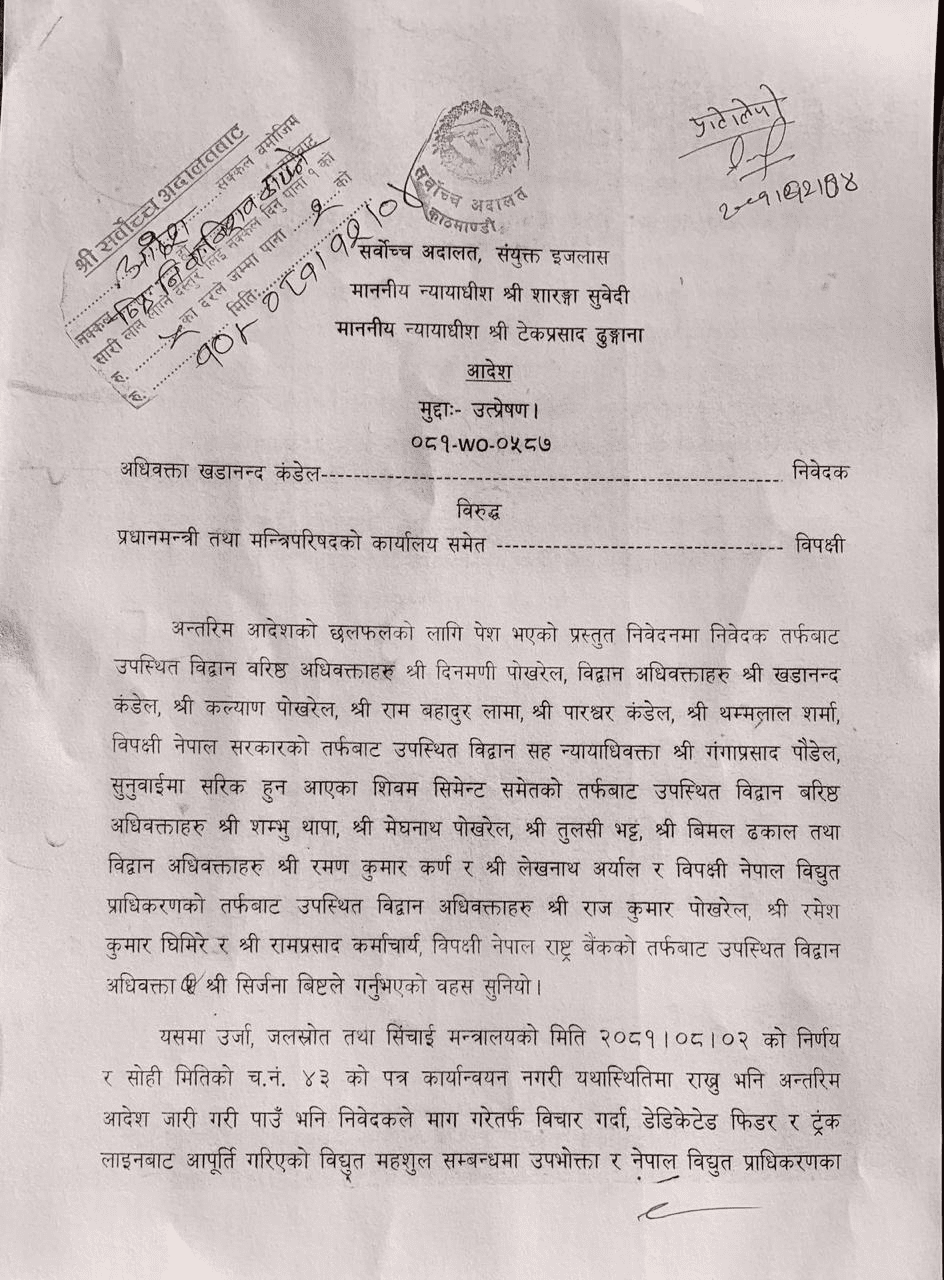 श्री सर्वोच्च अदालतबाट
आदेश सक्कल बमोजिम
सारी लान लाग्ने दस्तुर लिई नक्कल दिनु पाना १ को
का दरले जम्मा पाना २ को
मिति:
सर्वोच्च अदालत
काठमाण्डौ
सर्वोच्च अदालत, संयुक्त इजलास
माननीय न्यायाधीश श्री शारङ्गा सुवेदी
माननीय न्यायाधीश श्री टेकप्रसाद ढुङ्गाना
आदेश
मुद्दाः- उत्प्रेषण।
०८१-WO-०५८७
अधिवक्ता खडानन्द कंडेल------------------------------------------------------------------ निवेदक
विरुद्ध
प्रधानमन्त्री तथा मन्त्रिपरिषदको कार्यालय समेत ----------------------------------------- विपक्षी
अन्तरिम आदेशको छलफलको लागि पेश भएको प्रस्तुत निवेदनमा निवेदक तर्फबाट
उपस्थित विद्वान वरिष्ठ अधिवक्ताहरु श्री दिनमणी पोखरेल, विद्वान अधिवक्ताहरु श्री खडानन्द
कंडेल, श्री कल्याण पोखरेल, श्री राम बहादुर लामा, श्री पारश्वर कंडेल, श्री थम्मलाल शर्मा,
विपक्षी नेपाल सरकारको तर्फबाट उपस्थित विद्वान सह न्यायाधिवक्ता श्री गंगाप्रसाद पौडेल,
सुनुवाईमा सरिक हुन आएका शिवम सिमेन्ट समेतको तर्फबाट उपस्थित विद्वान बरिष्ठ
अधिवक्ताहरु श्री शम्भु थापा, श्री मेघनाथ पोखरेल, श्री तुलसी भट्ट, श्री बिमल ढकाल तथा
विद्वान अधिवक्ताहरु श्री रमण कुमार कर्ण र श्री लेखनाथ अर्याल र विपक्षी नेपाल विद्युत
प्राधिकरणको तर्फबाट उपस्थित विद्वान अधिवक्ताहरु श्री राज कुमार पोखरेल, श्री रमेश
कुमार घिमिरे र श्री रामप्रसाद कर्माचार्य, विपक्षी नेपाल राष्ट्र बैंकको तर्फबाट उपस्थित विद्वान
अधिवक्ता श्री सिर्जना बिष्टले गर्नुभएको वहस सुनियो।
यसमा उर्जा, जलस्रोत तथा सिंचाई मन्त्रालयको मिति २०८१।०८।०२ को निर्णय
र सोही मितिको च.नं. ४३ को पत्र कार्यान्वयन नगरी यथास्थितिमा राख्नु भनि अन्तरिम
आदेश जारी गरी पाउँ भनि निवेदकले माग गरेतर्फ विचार गर्दा, डेडिकेटेड फिडर र ट्रंक
लाइनबाट आपूर्ति गरिएको विद्युत महशुल सम्बन्धमा उपभोक्ता र नेपाल विद्युत प्राधिकरणका